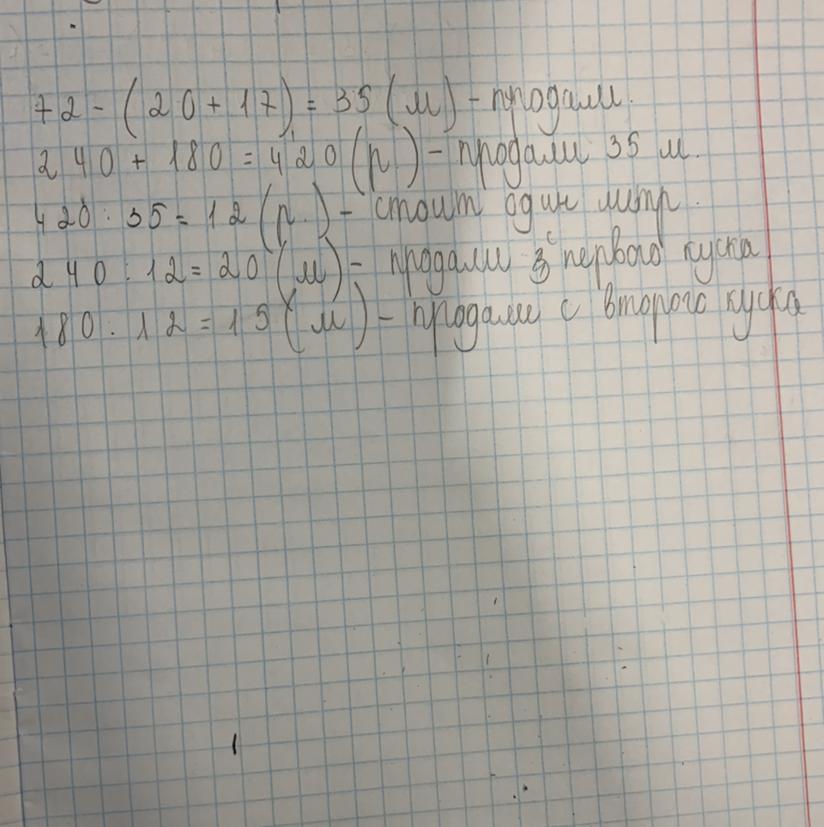 72 - (20 + 17) = 35 (м) - продали.
240 + 180 = 420 (р.) - продали 35 м.
420 : 35 = 12 (р.) - стоит один метр.
240 : 12 = 20 (м) - продали с первого куска
180 : 12 = 15 (м) - продали с второго куска